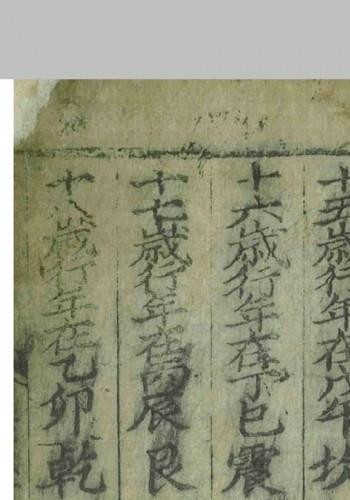 十五歲行年在戊午坎
十六歲行年在丁巳震
十七歲行年在丙辰艮
十八歲行年在乙卯乾